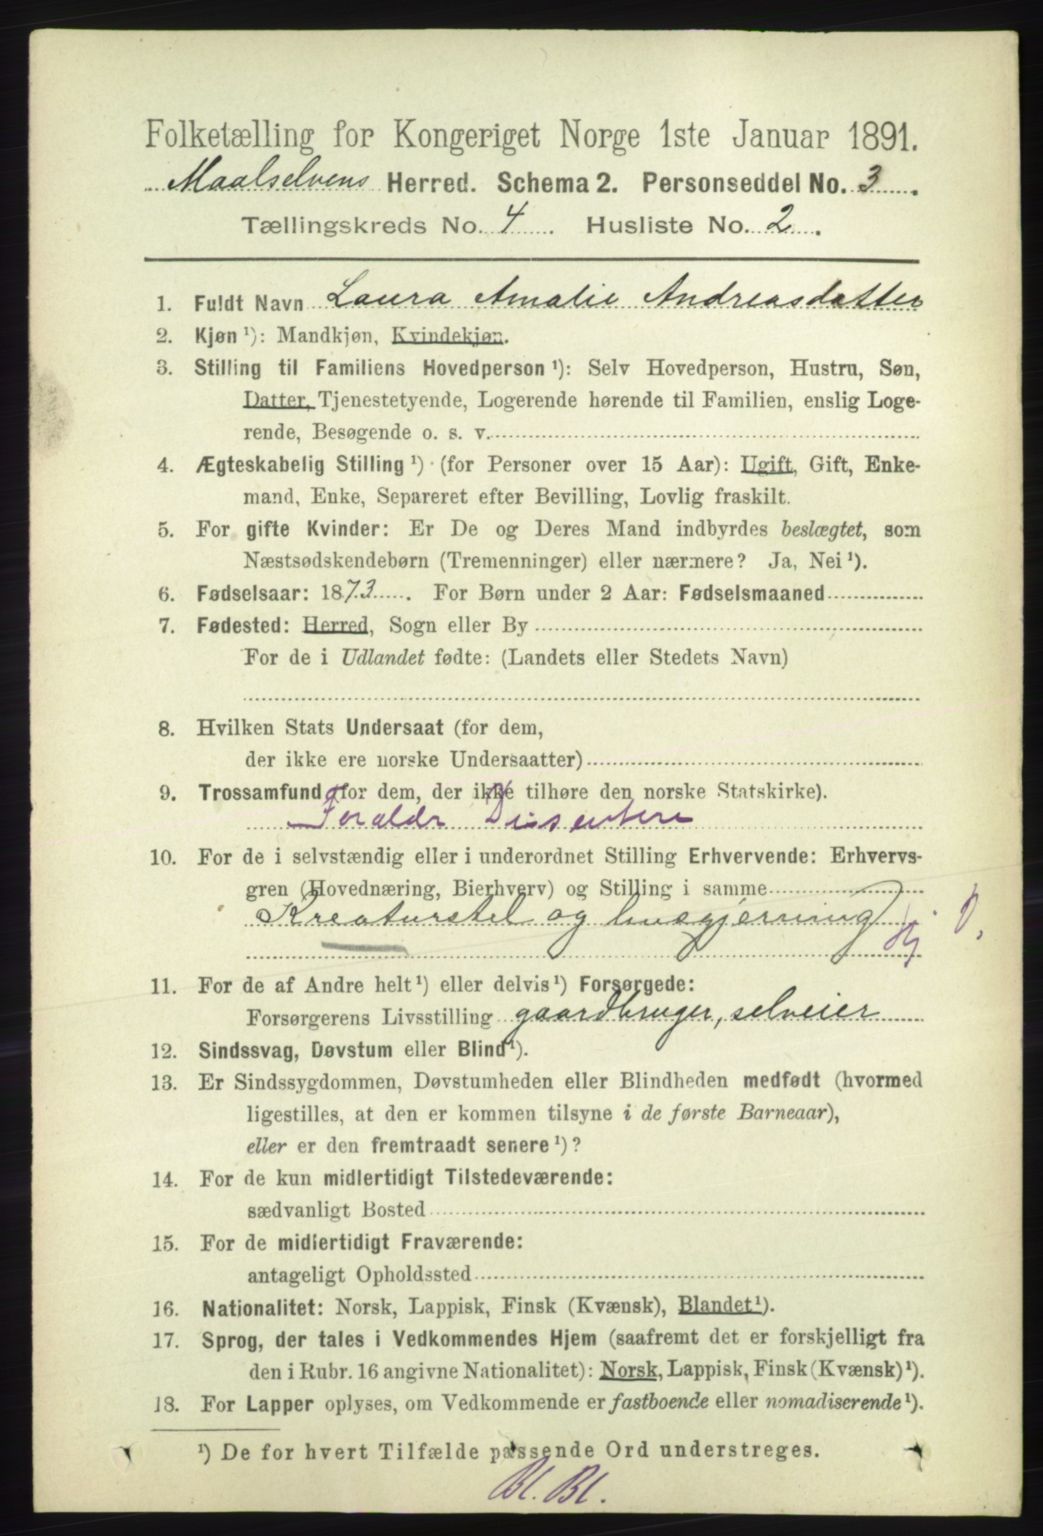 Folketælling for Kongeriget Norge 1ste Januar 1891.
Maalselvens Herred. Schema 2. Personseddel No. 3.
Tællingskreds No. 4. Husliste No. 2.
1. Fuldt Navn Laura Amalie Andreasdatter
2. Kjøn ¹): Mandkjøn, Kvindekjøn.
3. Stilling til Familiens Hovedperson ¹): Selv Hovedperson, Hustru, Søn,
Datter, Tjenestetyende, Logerende hørende til Familien, enslig Loge-
rende, Besøgende o. s. v.
4. Ægteskabelig Stilling ¹) (for Personer over 15 Aar): Ugift, Gift, Enke-
mand, Enke, Separeret efter Bevilling, Lovlig fraskilt.
5. For gifte Kvinder: Er De og Deres Mand indbyrdes beslægtet, som
Næstsødskendebørn (Tremenninger) eller nærmere? Ja, Nei ¹).
6. Fødselsaar: 1873. For Børn under 2 Aar: Fødselsmaaned
7. Fødested: Herred, Sogn eller By
For de i Udlandet fødte: (Landets eller Stedets Navn)
8. Hvilken Stats Undersaat (for dem,
der ikke ere norske Undersaatter)
9. Trossamfund (for dem, der ikke tilhøre den norske Statskirke).
Foraldr Dissentere
10. For de i selvstændig eller i underordnet Stilling Erhvervende: Erhvervs-
gren (Hovednæring, Bierhverv) og Stilling i samme
Kreaturstel og husgjerning
11. For de af Andre helt ¹) eller delvis ¹) Forsørgede:
Forsørgerens Livsstilling gaardbruger, selveier
12. Sindssvag, Døvstum eller Blind ¹).
13. Er Sindssygdommen, Døvstumheden eller Blindheden medfødt (hvormed
ligestilles, at den er kommen tilsyne i de første Barneaar),
eller er den fremtraadt senere ¹)?
14. For de kun midlertidigt Tilstedeværende:
sædvanligt Bosted
15. For de midlertidigt Fraværende:
antageligt Opholdssted
16. Nationalitet: Norsk, Lappisk, Finsk (Kvænsk), Blandet ¹).
17. Sprog, der tales i Vedkommendes Hjem (saafremt det er forskjelligt fra
den i Rubr. 16 angivne Nationalitet): Norsk, Lappisk, Finsk (Kvænsk) ¹).
18. For Lapper oplyses, om Vedkommende er fastboende eller nomadiserende ¹).
¹) De for hvert Tilfælde passende Ord understreges.
Bl. Bl.